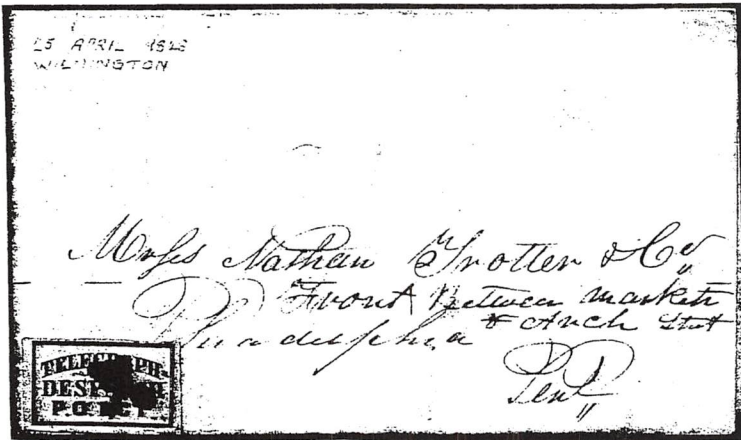 25 APRIL
WILMINGTON
Nathan Trotter & Co
Front Between Market
& Arch
Philadelphia
TELEGRAPH
DESPATCH
P.O.